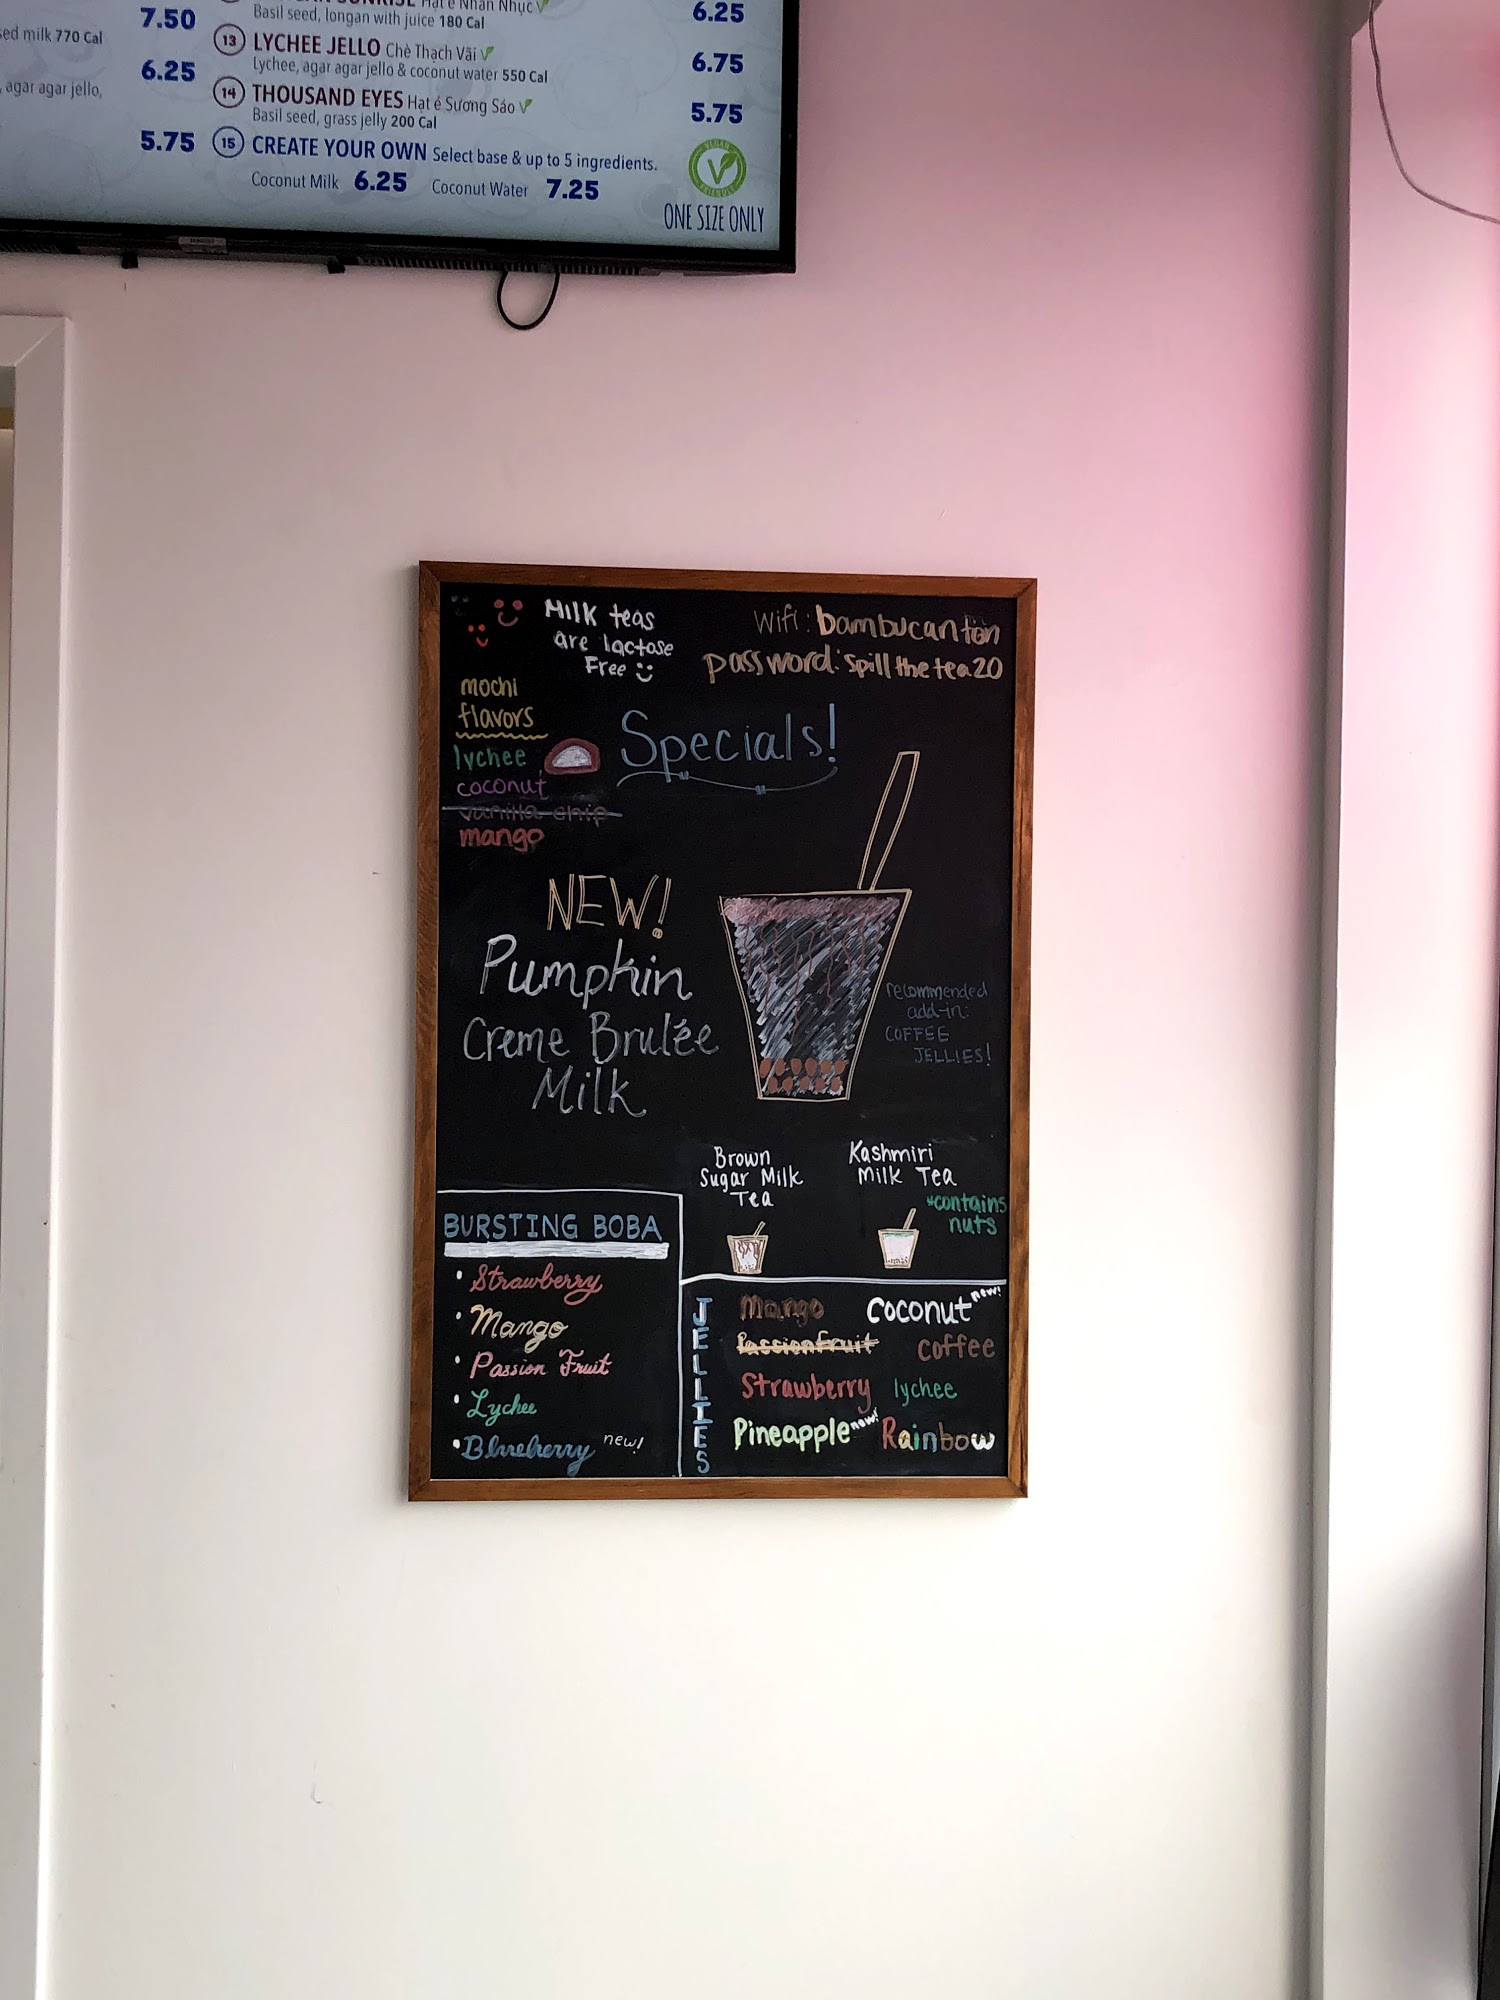 7.50
sed milk 770 Cal
6.25
, agar agar jello,
5.75
Hạt é Nhãn Nhục
6.25
Basil seed, longan with juice 180 Cal
13 LYCHEE JELLO Chè Thạch Vãi
6.75
Lychee, agar agar jello & coconut water 550 Cal
14 THOUSAND EYES Hạt é Sương Sáo
5.75
Basil seed, grass jelly 200 Cal
15 CREATE YOUR OWN Select base & up to 5 ingredients.
Coconut Milk 6.25 Coconut Water 7.25
VEGAN FRIENDLY
ONE SIZE ONLY
Milk teas
are lactose
Free
Wifi: bambucanton
password: spill the tea20
mochi
flavors
lychee
coconut
vanilla chip
mango
Specials!
NEW!
Pumpkin
Creme Brulée
Milk
recommended
add-in:
COFFEE
JELLIES!
Brown
Sugar Milk
Tea
Kashmiri
Milk Tea
*contains
nuts
BURSTING BOBA
• Strawberry
• Mango
• Passion Fruit
• Lychee
• Blueberry new!
JELLIES
Mango
Coconut new!
Passionfruit
coffee
Strawberry
lychee
Pineapple new!
Rainbow